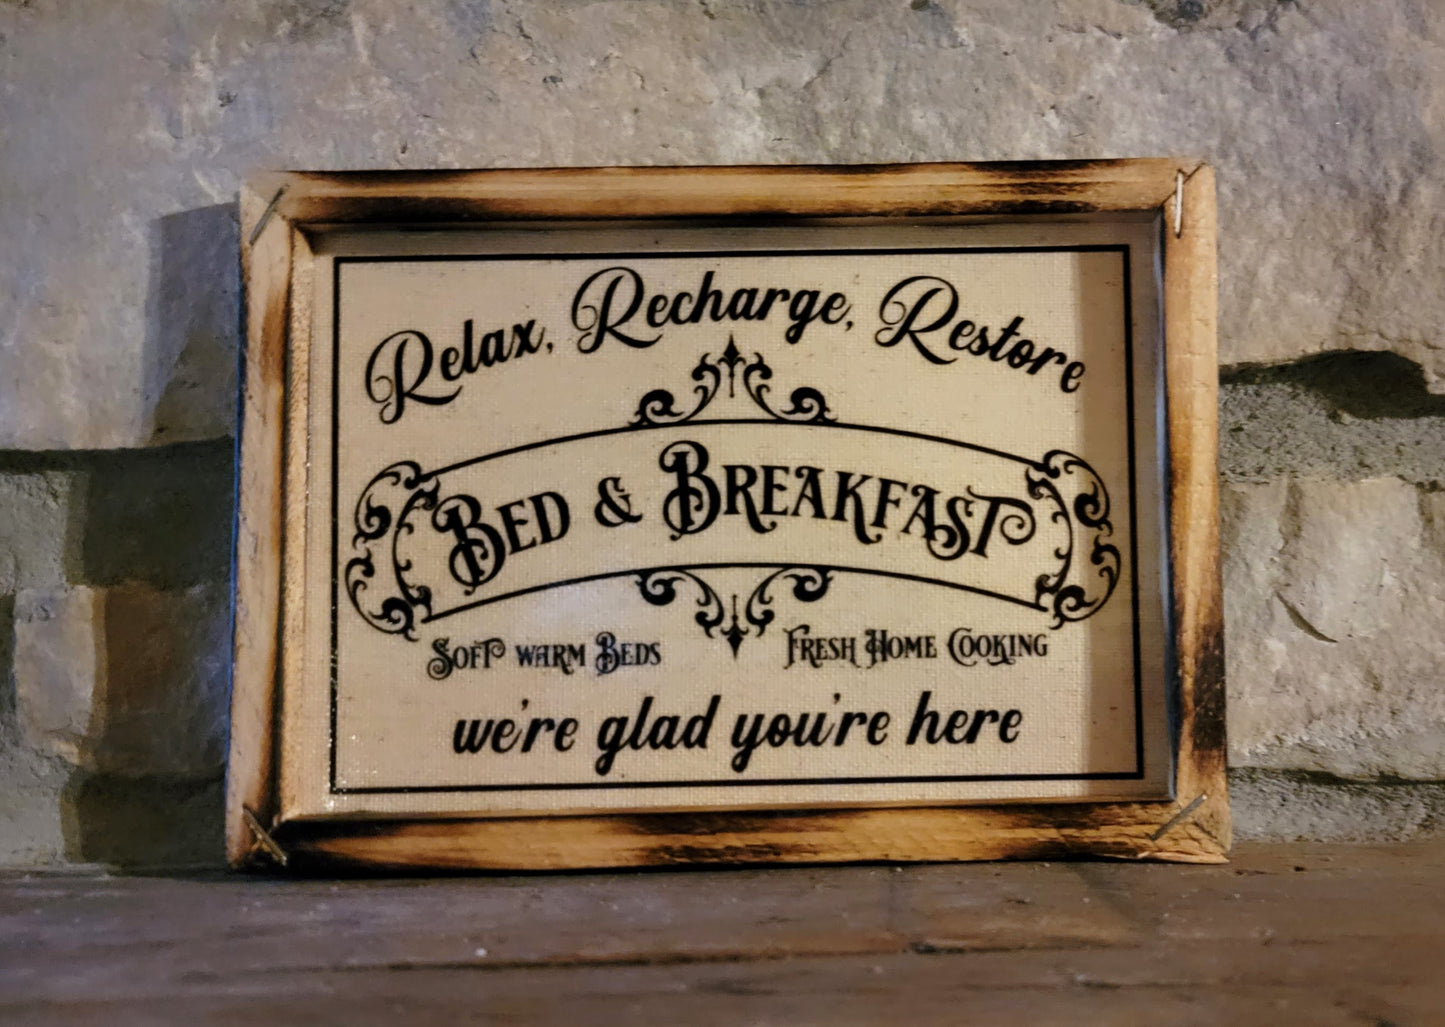 Relax, Recharge, Restore
Bed & Breakfast
Soft warm Beds
Fresh Home Cooking
we're glad you're here